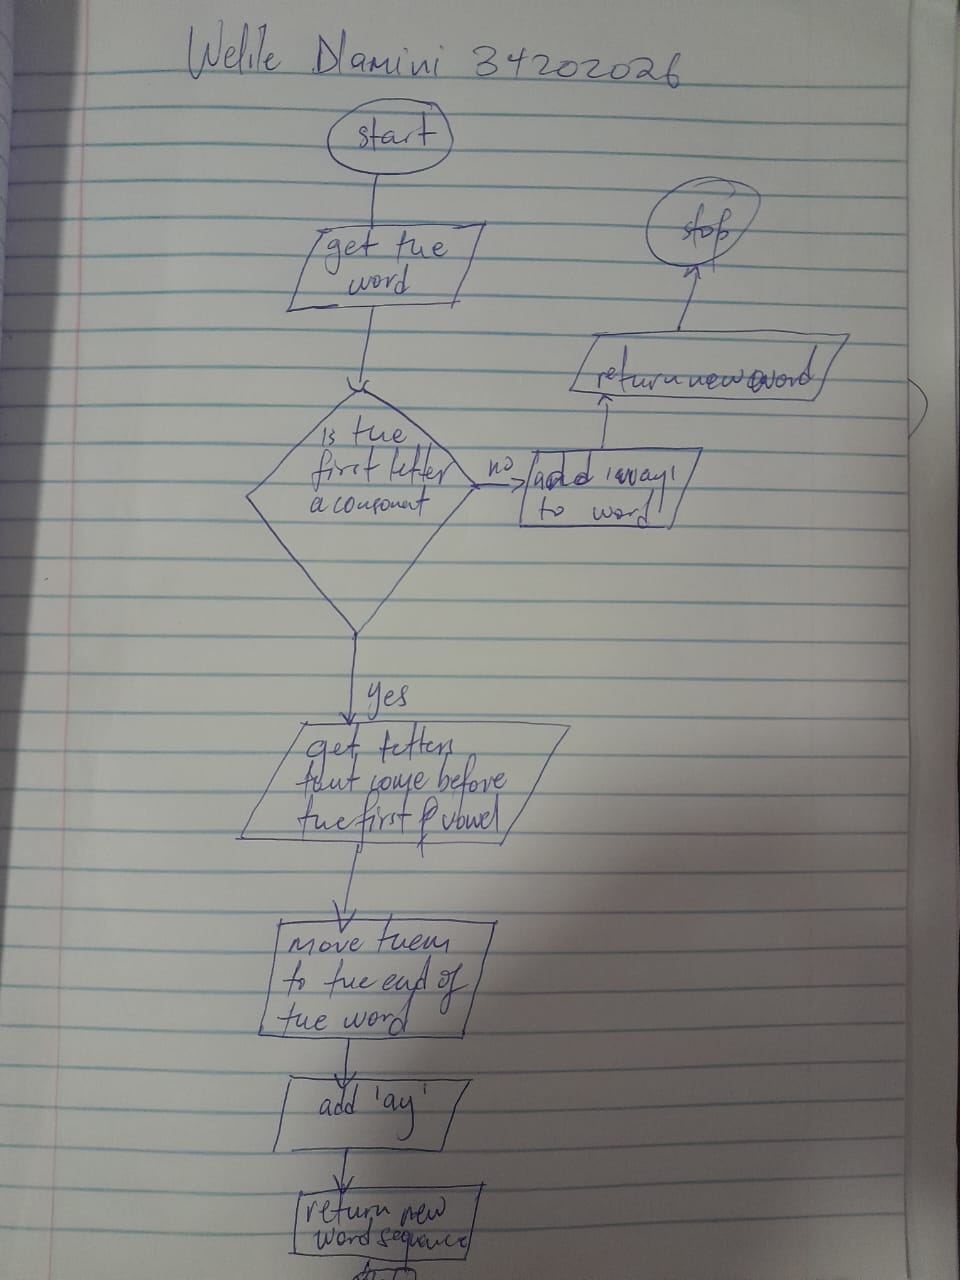 Welile Dlamini 34202026
start
get the
word
Is the
first letter
a consonant
no
add 'way'
to word
return new word
stop
yes
get letters
that come before
the first vowel
move them
to the end of
the word
add 'ay'
return new
word sequence